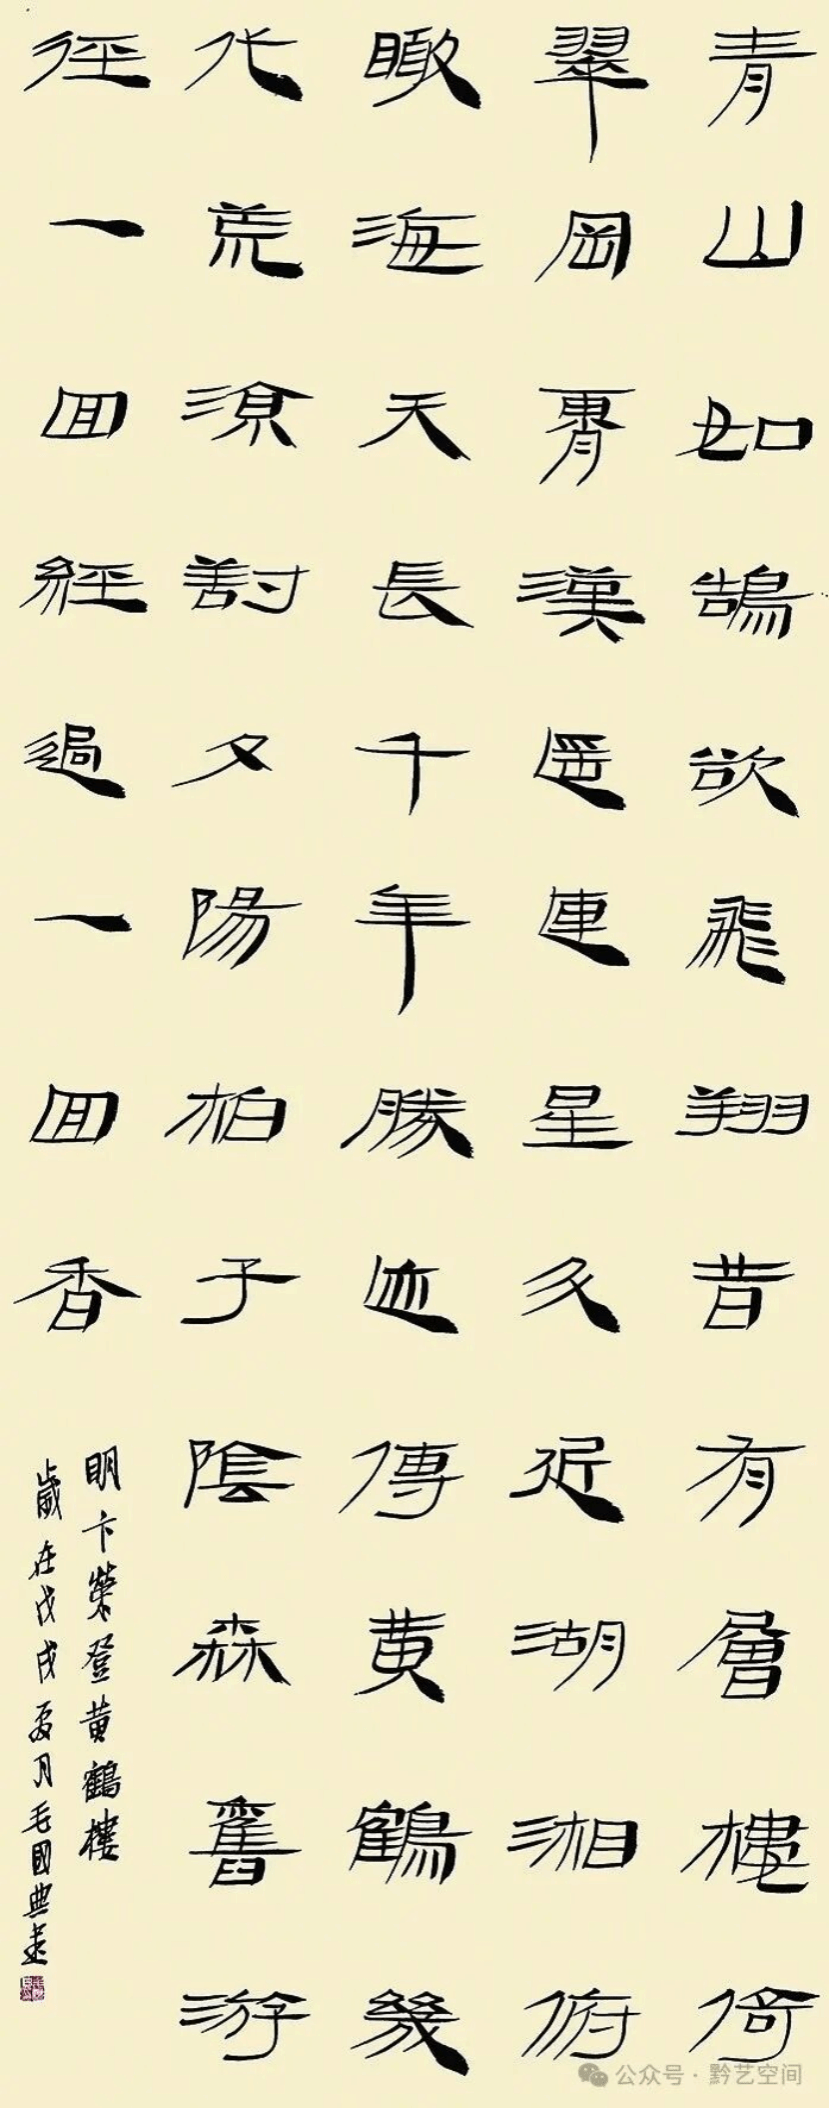 青山如鵠欲飛翔昔有層樓倚
翠岡霄漢連星斗近湖湘俯
瞰海天長千年勝迹傳黄鶴幾
代荒涼對夕陽柏子陰森舊游
徑一回經過一回香
明卞榮登黄鶴樓
歲在戊戌夏月毛國典書
公众号·黔艺空间